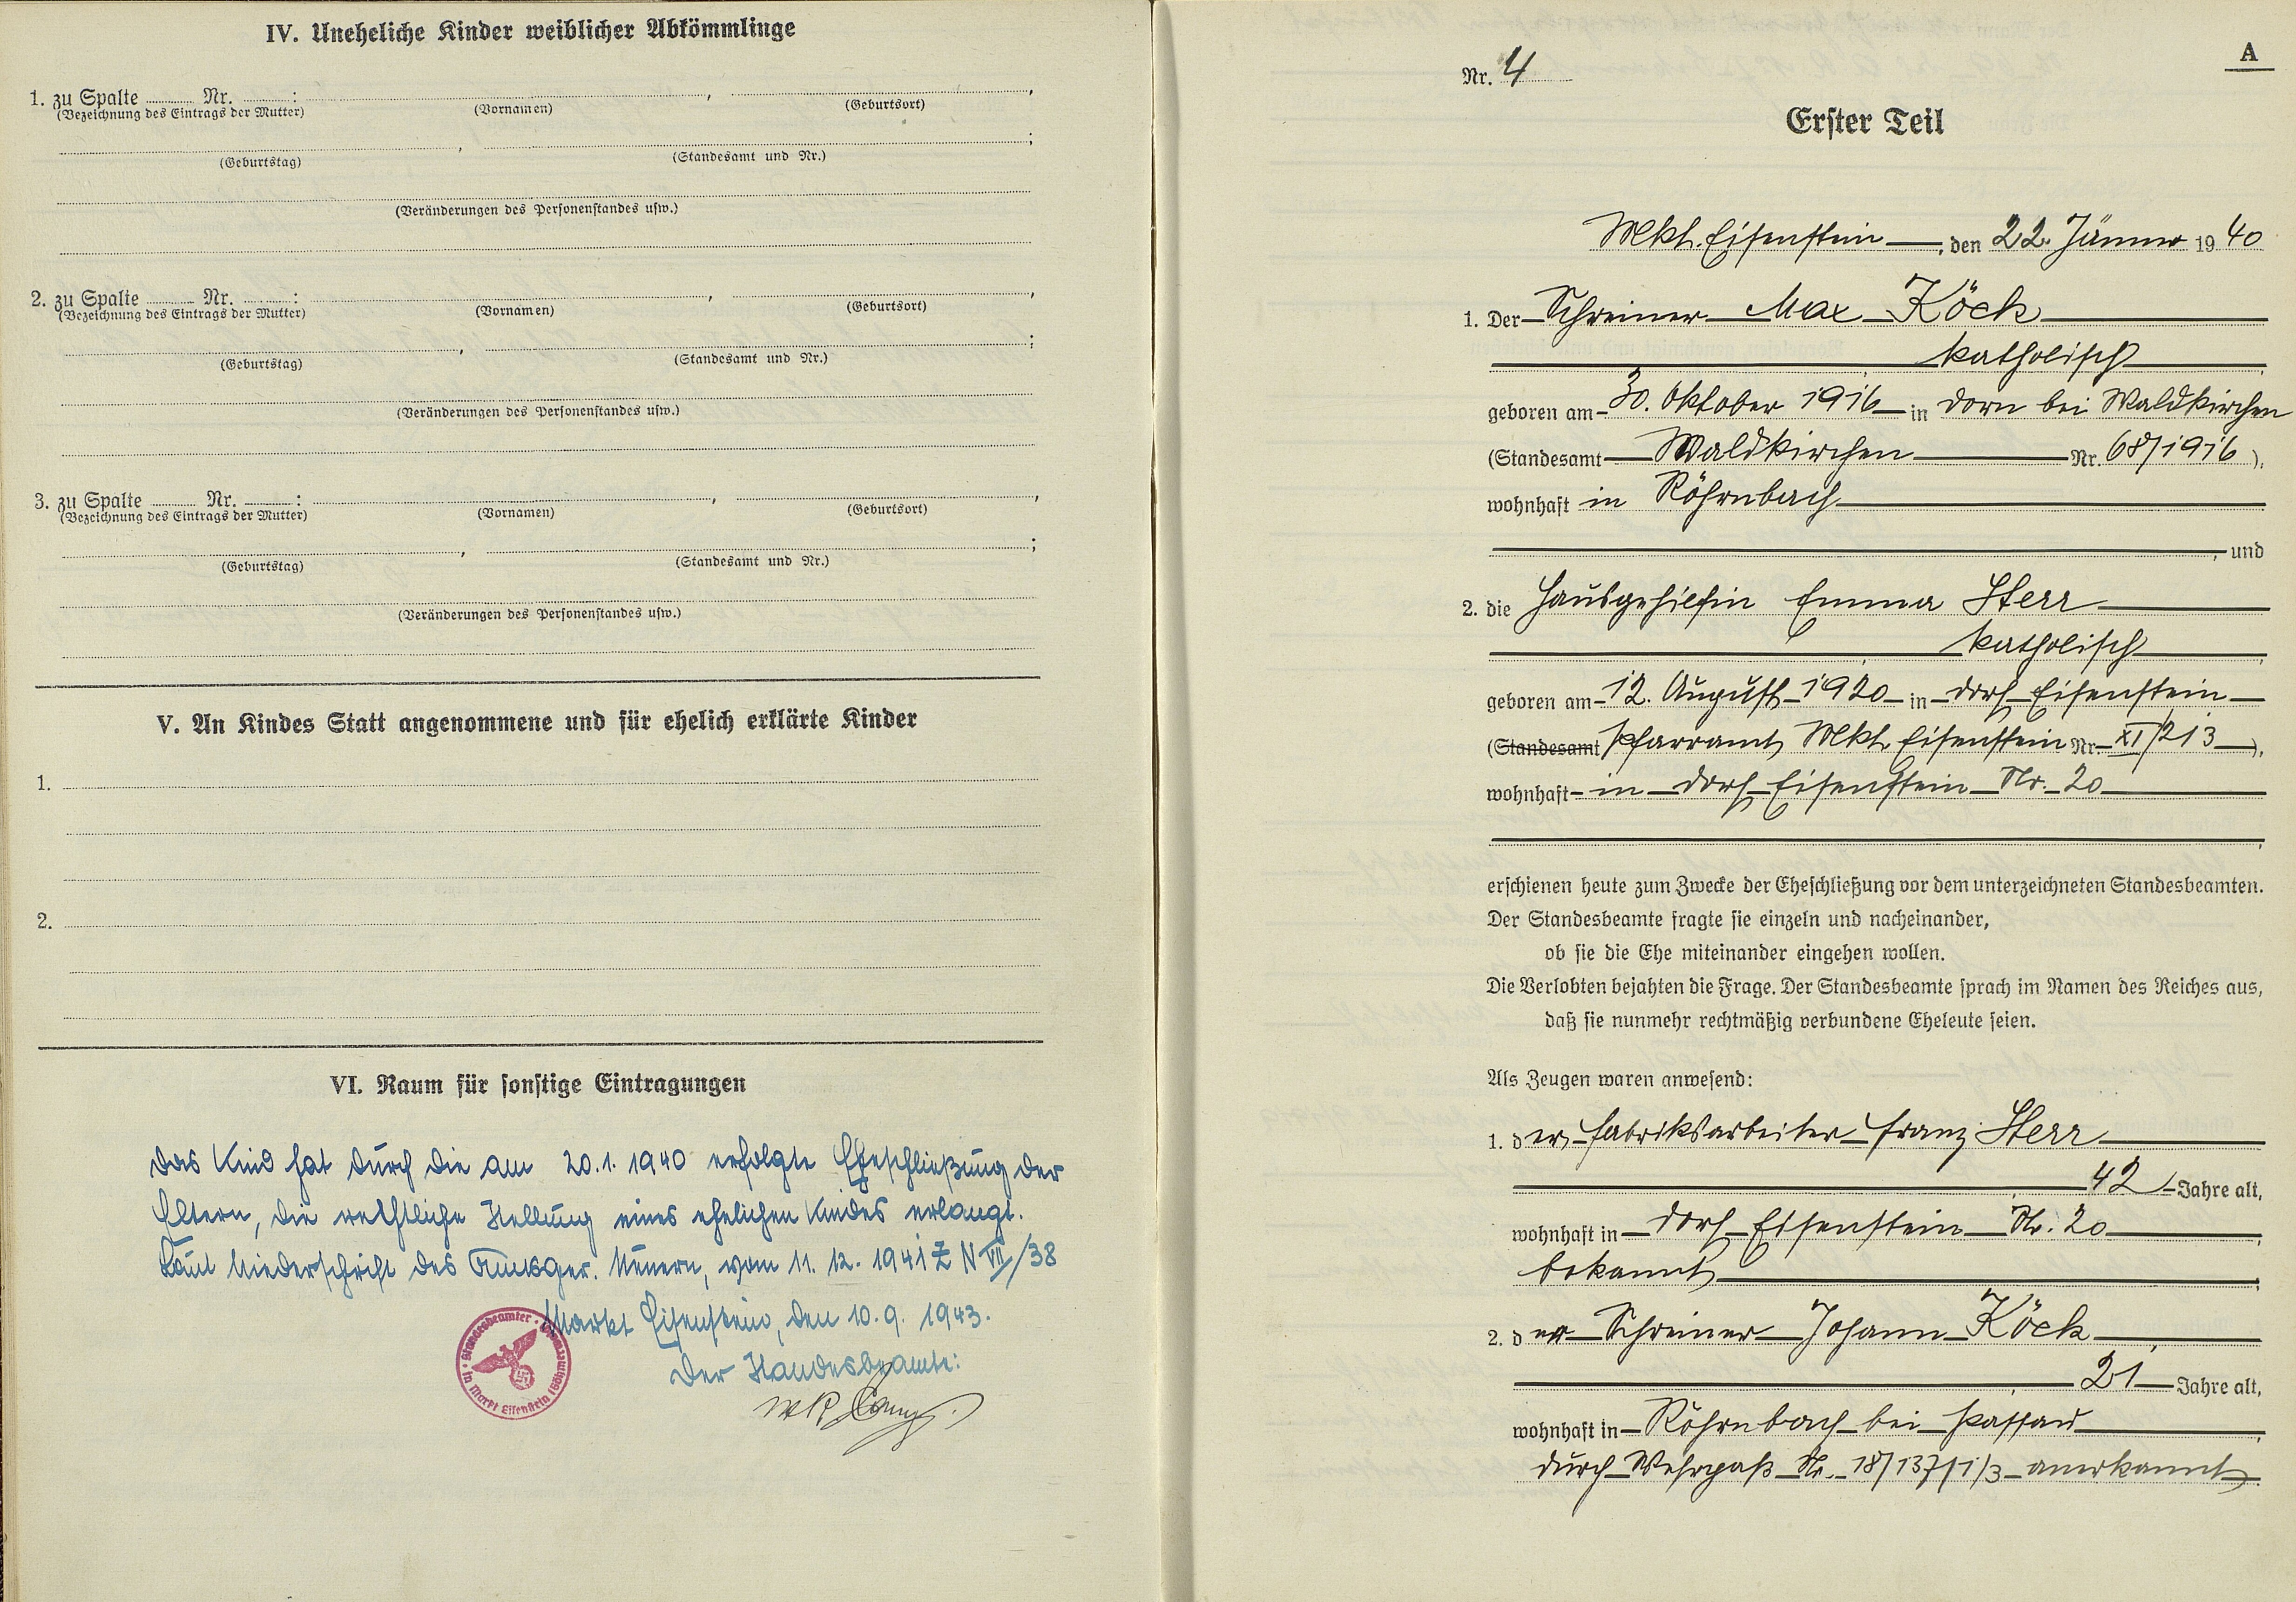 IV. Uneheliche Kinder weiblicher Abkömmlinge
1. zu Spalte ........ Nr. ........:
(Bezeichnung des Eintrags der Mutter) (Vornamen) (Geburtsort)
(Geburtstag) (Standesamt und Nr.)
(Veränderungen des Personenstandes usw.)
2. zu Spalte ........ Nr. ........:
(Bezeichnung des Eintrags der Mutter) (Vornamen) (Geburtsort)
(Geburtstag) (Standesamt und Nr.)
(Veränderungen des Personenstandes usw.)
3. zu Spalte ........ Nr. ........:
(Bezeichnung des Eintrags der Mutter) (Vornamen) (Geburtsort)
(Geburtstag) (Standesamt und Nr.)
(Veränderungen des Personenstandes usw.)
V. An Kindes Statt angenommene und für ehelich erklärte Kinder
1.
2.
VI. Raum für sonstige Eintragungen
Das Kind hat durch die am 20.1.1940 erfolgte Eheschließung der
Eltern, die rechtliche Stellung eines ehelichen Kindes erlangt.
Laut Niederschrift des Amtsger. Neuern, vom 11.12.1941 Z N VII/38
Markt Eisenstein, den 10.9.1943.
Der Standesbeamte:
Standesbeamter
in Markt Eisenstein
A
Nr. 4
Erster Teil
Mkt. Eisenstein, den 22. Jänner 1940
1. Der Schreiner Max Köck
katholisch
geboren am 30. Oktober 1916 in Dorn bei Waldkirchen
(Standesamt Waldkirchen Nr. 68/1916),
wohnhaft in Röhrnbach
, und
2. die Hausgehilfin Emma Sterr
katholisch
geboren am 12. August 1920 in Dorf Eisenstein
(Standesamt Pfarramt Mkt. Eisenstein Nr. XI/213),
wohnhaft in Dorf Eisenstein Nr. 20
erschienen heute zum Zwecke der Eheschließung vor dem unterzeichneten Standesbeamten.
Der Standesbeamte fragte sie einzeln und nacheinander,
ob sie die Ehe miteinander eingehen wollen.
Die Verlobten bejahten die Frage. Der Standesbeamte sprach im Namen des Reiches aus,
daß sie nunmehr rechtmäßig verbundene Eheleute seien.
Als Zeugen waren anwesend:
1. der Fabriksarbeiter Franz Sterr
42 Jahre alt,
wohnhaft in Dorf Eisenstein Nr. 20
bekannt
2. der Schreiner Johann Köck
21 Jahre alt,
wohnhaft in Röhrnbach bei Passau
durch Wehrpaß Nr. 18/137/1/3 anerkannt